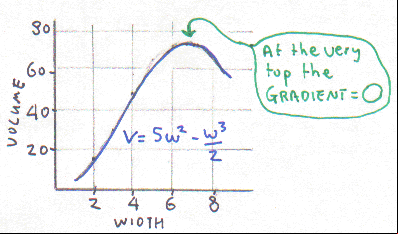 80
60
40
20
VOLUME
2 4 6 8
WIDTH
V = 5w² - w³/2
At the very
top the
GRADIENT = 0